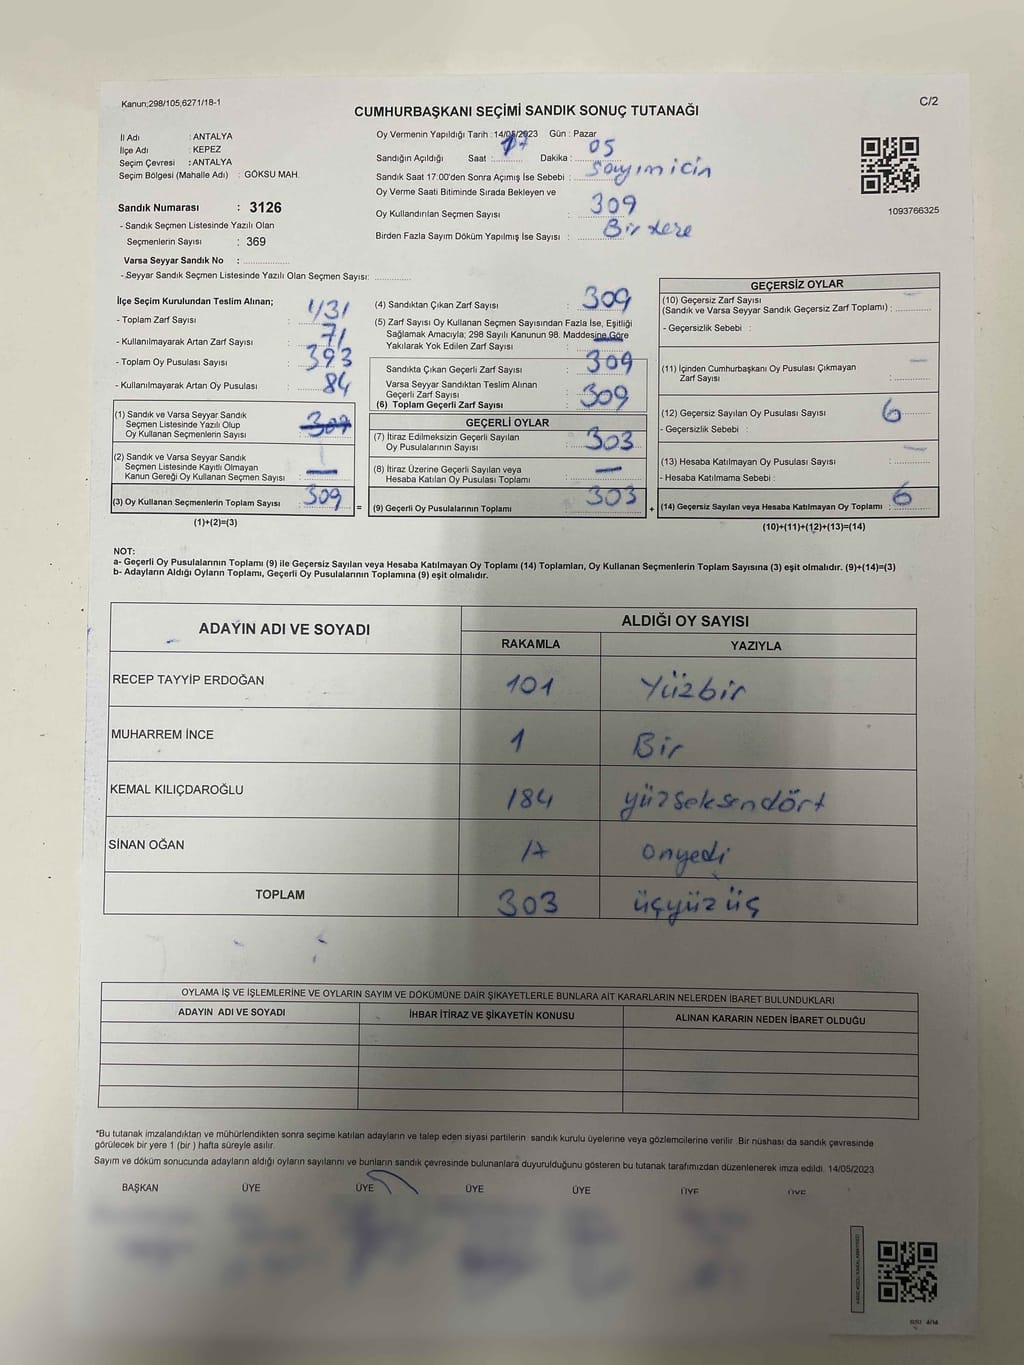 Kanun;298/105,6271/18-1
C/2
CUMHURBAŞKANI SEÇİMİ SANDIK SONUÇ TUTANAĞI
İl Adı : ANTALYA
İlçe Adı : KEPEZ
Seçim Çevresi : ANTALYA
Seçim Bölgesi (Mahalle Adı) : GÖKSU MAH.
Sandık Numarası : 3126
- Sandık Seçmen Listesinde Yazılı Olan
Seçmenlerin Sayısı : 369
Varsa Seyyar Sandık No :
- Seyyar Sandık Seçmen Listesinde Yazılı Olan Seçmen Sayısı:
Oy Vermenin Yapıldığı Tarih : 14/05/2023 Gün : Pazar
Sandığın Açıldığı Saat : 17 Dakika : 05
Sandık Saat 17:00'den Sonra Açımış İse Sebebi : Sayım için
Oy Verme Saati Bitiminde Sırada Bekleyen ve
Oy Kullandırılan Seçmen Sayısı : 309
Birden Fazla Sayım Döküm Yapılmış İse Sayısı : Bir kere
1093766325
İlçe Seçim Kurulundan Teslim Alınan;
- Toplam Zarf Sayısı : 431
- Kullanılmayarak Artan Zarf Sayısı : 71
- Toplam Oy Pusulası Sayısı : 393
- Kullanılmayarak Artan Oy Pusulası : 84
(1) Sandık ve Varsa Seyyar Sandık
Seçmen Listesinde Yazılı Olup
Oy Kullanan Seçmenlerin Sayısı : 309
(2) Sandık ve Varsa Seyyar Sandık
Seçmen Listesinde Kayıtlı Olmayan
Kanun Gereği Oy Kullanan Seçmen Sayısı : —
(3) Oy Kullanan Seçmenlerin Toplam Sayısı : 309 =
(1)+(2)=(3)
(4) Sandıktan Çıkan Zarf Sayısı : 309
(5) Zarf Sayısı Oy Kullanan Seçmen Sayısından Fazla İse, Eşitliği
Sağlamak Amacıyla; 298 Sayılı Kanunun 98. Maddesine Göre
Yakılarak Yok Edilen Zarf Sayısı : —
Sandıkta Çıkan Geçerli Zarf Sayısı : 309
Varsa Seyyar Sandıktan Teslim Alınan
Geçerli Zarf Sayısı
(6) Toplam Geçerli Zarf Sayısı : 309
GEÇERLİ OYLAR
(7) İtiraz Edilmeksizin Geçerli Sayılan
Oy Pusulasının Sayısı : 303
(8) İtiraz Üzerine Geçerli Sayılan veya
Hesaba Katılan Oy Pusulası Toplamı : —
(9) Geçerli Oy Pusulalarının Toplamı : 303 +
GEÇERSİZ OYLAR
(10) Geçersiz Zarf Sayısı —
(Sandık ve Varsa Seyyar Sandık Geçersiz Zarf Toplamı) :
- Geçersizlik Sebebi :
(11) İçinden Cumhurbaşkanı Oy Pusulası Çıkmayan
Zarf Sayısı : —
(12) Geçersiz Sayılan Oy Pusulası Sayısı : 6
- Geçersizlik Sebebi :
(13) Hesaba Katılmayan Oy Pusulası Sayısı : —
- Hesaba Katılmama Sebebi :
(14) Geçersiz Sayılan veya Hesaba Katılmayan Oy Toplamı : 6
(10)+(11)+(12)+(13)=(14)
NOT:
a- Geçerli Oy Pusulalarının Toplamı (9) ile Geçersiz Sayılan veya Hesaba Katılmayan Oy Toplamı (14) Toplamları, Oy Kullanan Seçmenlerin Toplam Sayısına (3) eşit olmalıdır. (9)+(14)=(3)
b- Adayların Aldığı Oyların Toplamı, Geçerli Oy Pusulalarının Toplamına (9) eşit olmalıdır.
ADAYIN ADI VE SOYADI
ALDIĞI OY SAYISI
RAKAMLA YAZIYLA
RECEP TAYYİP ERDOĞAN 101 Yüzbir
MUHARREM İNCE 1 Bir
KEMAL KILIÇDAROĞLU 184 yüzseksendört
SİNAN OĞAN 17 Onyedi
TOPLAM 303 üçyüz üç
OYLAMA İŞ VE İŞLEMLERİNE VE OYLARIN SAYIM VE DÖKÜMÜNE DAİR ŞİKAYETLERLE BUNLARA AİT KARARLARIN NELERDEN İBARET BULUNDUKLARI
ADAYIN ADI VE SOYADI İHBAR İTİRAZ VE ŞİKAYETİN KONUSU ALINAN KARARIN NEDEN İBARET OLDUĞU
*Bu tutanak imzalandıktan ve mühürlendikten sonra seçime katılan adayların ve talep eden siyasi partilerin sandık kurulu üyelerine veya gözlemcilerine verilir. Bir nüshası da sandık çevresinde
görülecek bir yere 1 (bir ) hafta süreyle asılır.
Sayım ve döküm sonucunda adayların aldığı oyların sayılarını ve bunların sandık çevresinde bulunanlara duyurulduğunu gösteren bu tutanak tarafımızdan düzenlenerek imza edildi. 14/05/2023
BAŞKAN ÜYE ÜYE ÜYE ÜYE ÜYE ÜYE